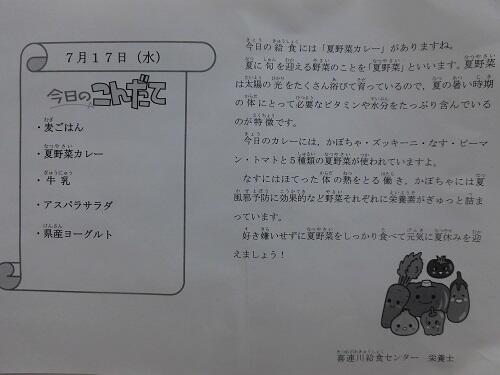 7月17日（水）
今日のこんだて
・麦ごはん
・夏野菜カレー
・牛乳
・アスパラサラダ
・県産ヨーグルト
今日の給食には「夏野菜カレー」がありますね。
夏に旬を迎える野菜のことを「夏野菜」といいます。夏野菜
は太陽の光をたくさん浴びて育っているので，夏の暑い時期
の体にとって必要なビタミンや水分をたっぷり含んでいる
のが特徴です。
今日のカレーには，かぼちゃ・ズッキーニ・なす・ピーマ
ン・トマトと5種類の夏野菜が使われていますよ。
なすにはほてった体の熱をとる働き，かぼちゃには夏
風邪予防に効果的など野菜それぞれに栄養素がぎゅっと詰ま
っています。
好き嫌いせずに夏野菜をしっかり食べて元気に夏休みを迎
えましょう！
喜連川給食センター　栄養士